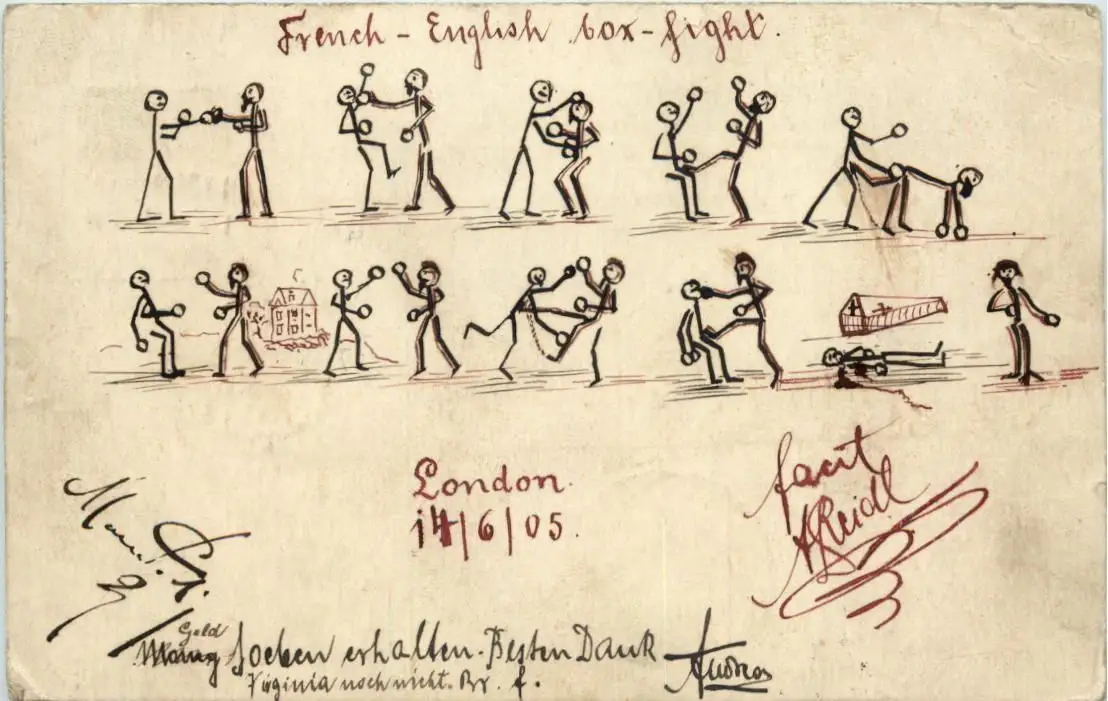 French - English box-fight.
London.
14/6/05.
facit
AReidl
Geld
soeben erhalten. Besten Dank
Virginia noch nicht. Br. f.